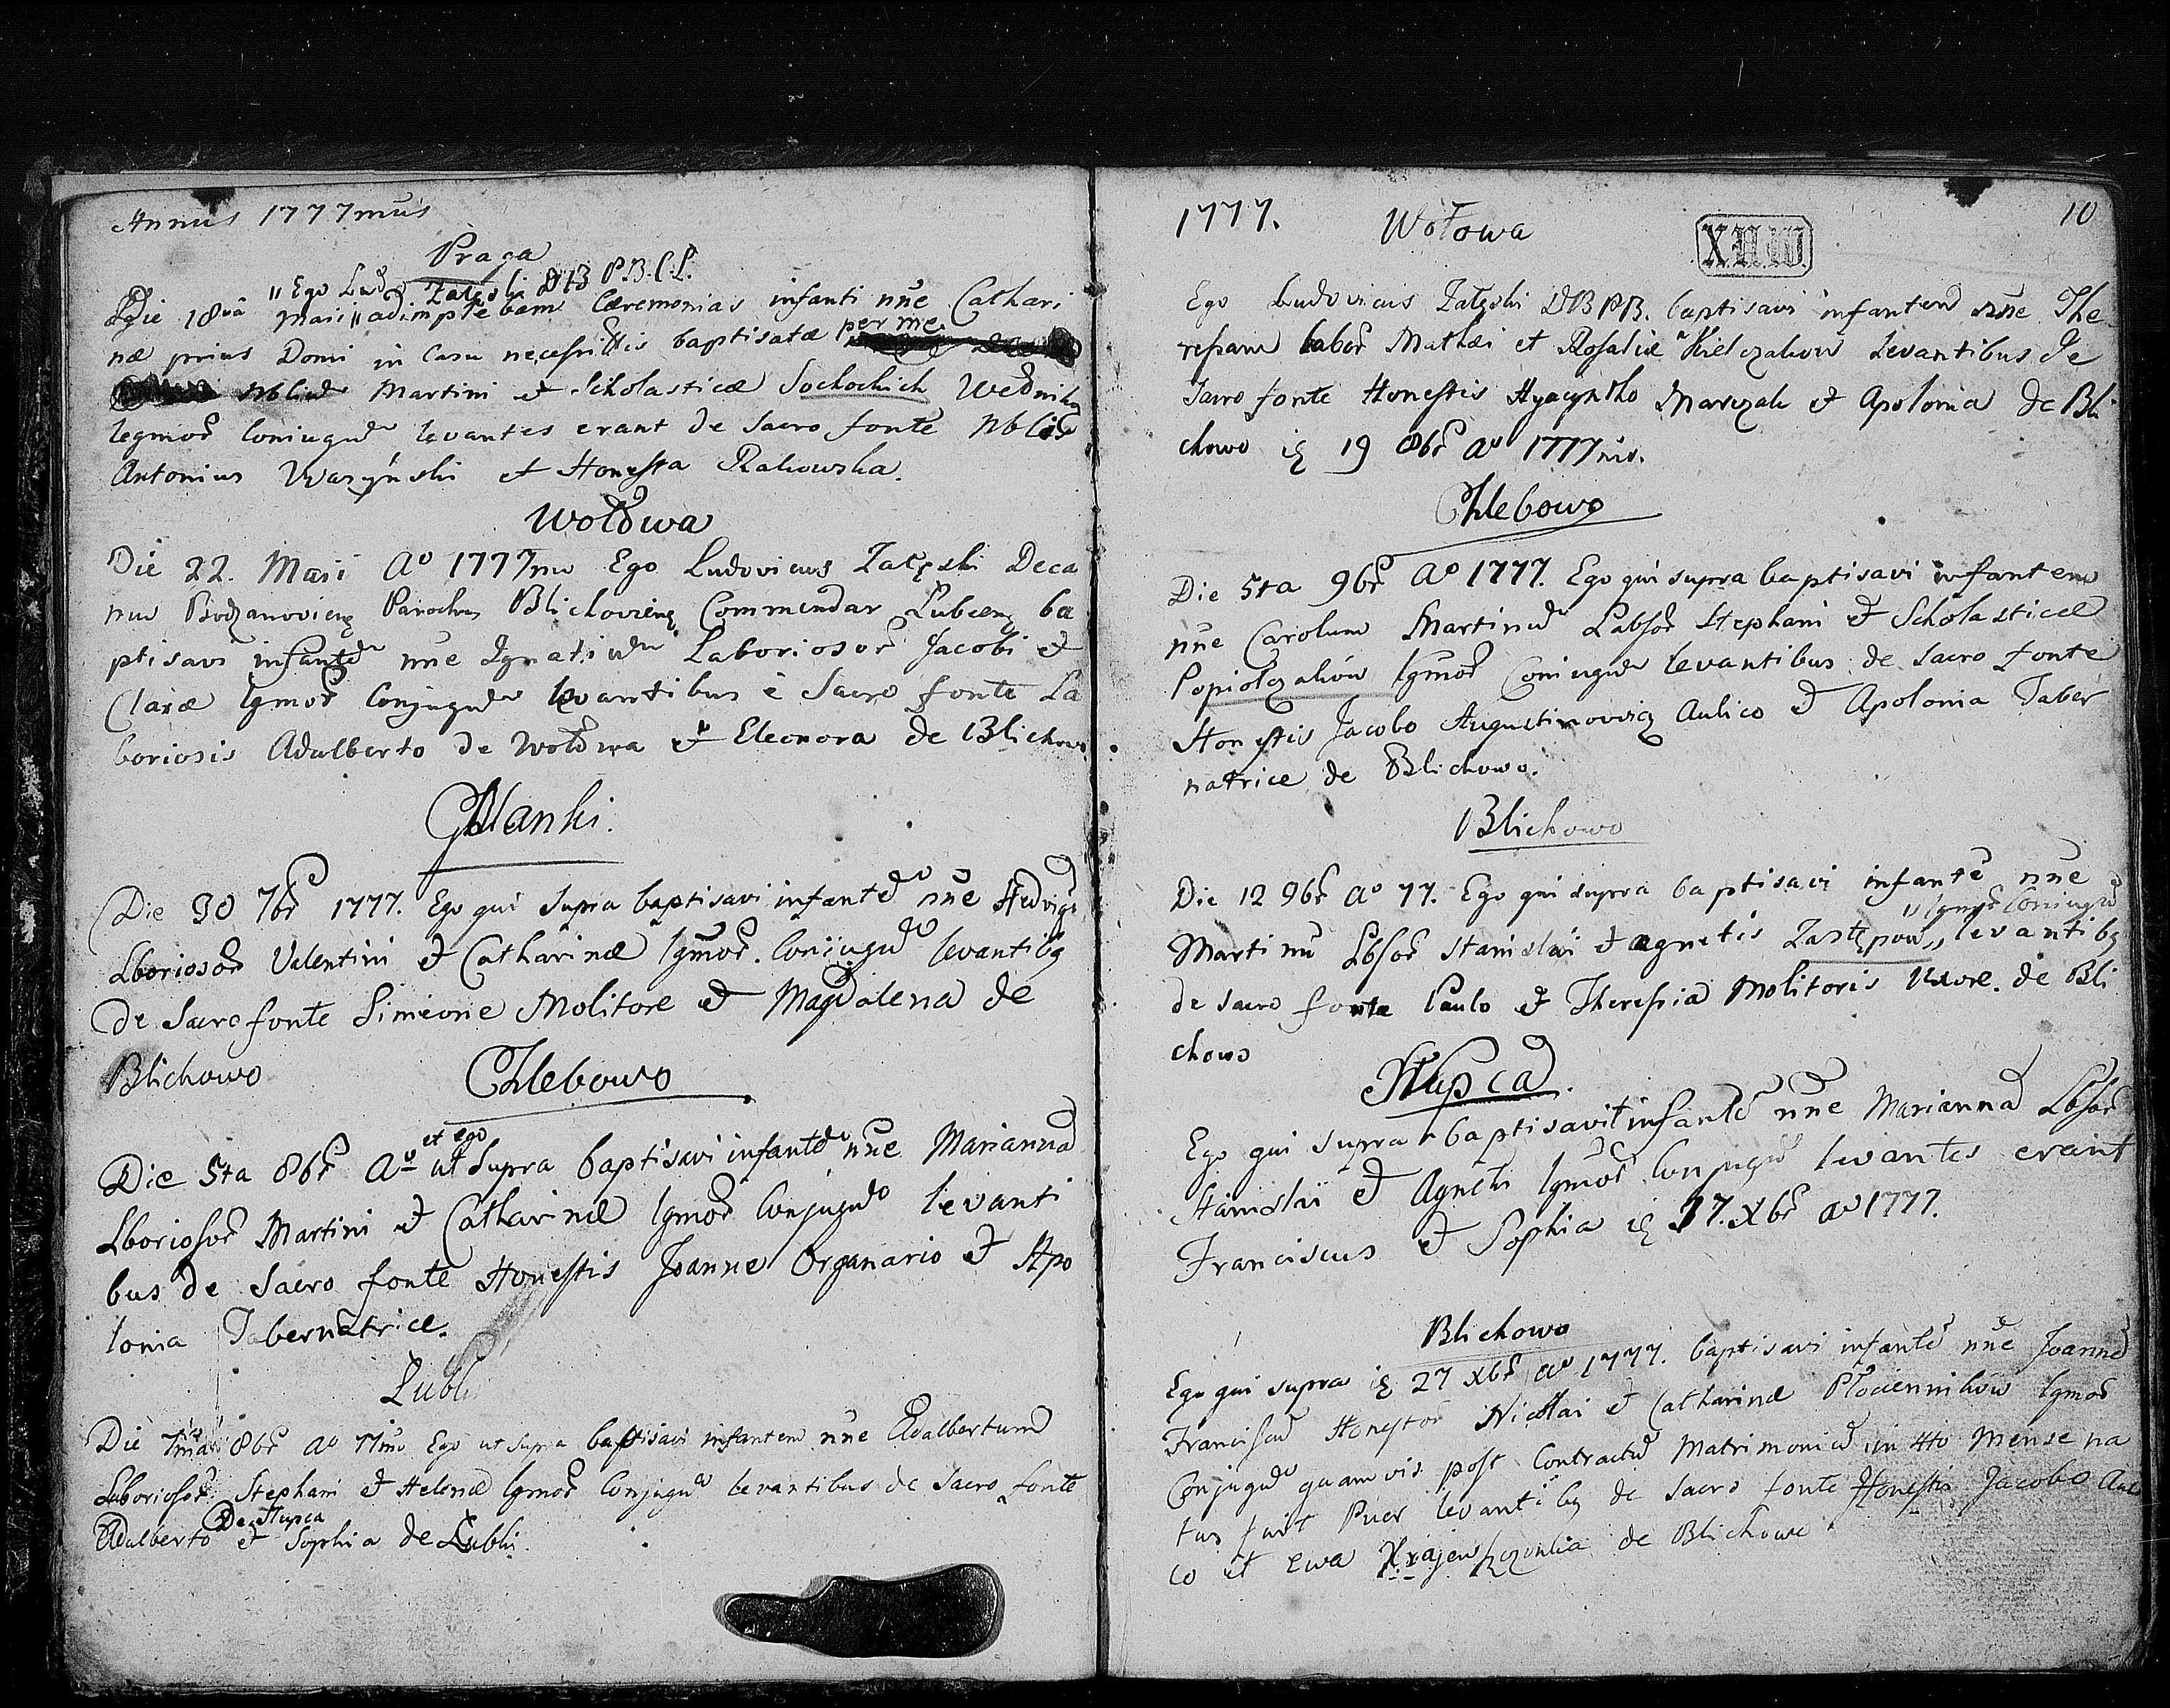 Annus 1777mus
Praga
"Ego Lud. Załęski DB P.B.C.L.
Die 18va Maii "adimplebam Cæremonias infanti nne Cathari
næ prius Domi in Casu necessittis baptisatæ per me
Martini et Scholasticæ Sochockich
legmor Coniugum levantes erant de Sacro fonte Nblis
Antonius Waszyński et Honesta Rakowska.
Wołowa
Die 22. Maii Ao 1777mo Ego Ludovicus Załęski Deca
nus Bodzanoviens Parochus Blichoviens Commendar Lubens ba
ptisavi infantem nne Ignatium Laboriosor Jacobi et
Claræ lgmor Conjugum levantibus è Sacro fonte La
boriosis Adalberto de Wołowa et Eleonora de Blichowo.
Blanki.
Die 30 7br 1777. Ego qui Supra baptisavi infantem nne Hedvige
Lboriosor Valentini et Catharinæ lgmor. Coniugum levantibq
de Sacro fonte Simeone Molitore et Magdalena de
Blichowo
Chlebowo
et ego
Die 5ta 8br Ao ut Supra baptisavi infantem nne Marianna
Lboriosor Martini et Catharinæ lgmor Conjugum levanti
bus de Sacro fonte Honestis Joanne Organario et Apo
lonia Tabernatrice.
Lubki
Die 8br Ao 77mo Ego ut Supra baptisavi infantem nne Adalbertum
Laboriosor Stephani et Helenæ lgmor Conjugum levantibus de Sacro fonte
De Słupca
Adalberto et Sophia de Lubki.
1777. Wołowa 10
X.H.W.
Ego Ludovicus Załęski DB PB. baptisavi infantem nne The
resiam labor Mathæi et Rosaliæ Kielczaków Levantibus de
Sacro fonte Honestis Hyacyntho Marczak et Apolonia de Bli
chowo 19 8br Ao 1777mo.
Chlebowo
Die 5ta 9br Ao 1777. Ego qui supra baptisavi infantem
nne Carolum Martinum Labsor Stephani et Scholasticæ
Popiołczaków lgmor Coniugum levantibus de Sacro fonte
Honestis Jacobo Augustinowicz Aulico et Apolonia Taber
natrice de Blichowo.
Blichowo
Die 12 9br Ao 77. Ego qui supra baptisavi infante nne
"lgmor Coniugum
Martinu Lbsor Stanislai et Agnetis Zastępow" levantibq
de Sacro fonte Paulo et Theresia Molitoris Uxore. de Bli
chowo
Słupca.
Ego qui supra baptisavit infante nne Marianna Lbsor
Stanislai et Agnetis lgmor Conjugum levantes erant
Franciscus et Sophia 17. Xbr Ao 1777.
Blichowo
Ego qui supra 27 Xbr Ao 1777. baptisavi infante nne Joanne
Franciscu Honestor Nicolai et Catharinæ Płócienników lgmor
Conjugum quamvis post Contractu Matrimoniu in 4to Mense na
tus fuit Puer levantibq de Sacro fonte Honestis Jacobo Auli
co et Ewa de Blichowo